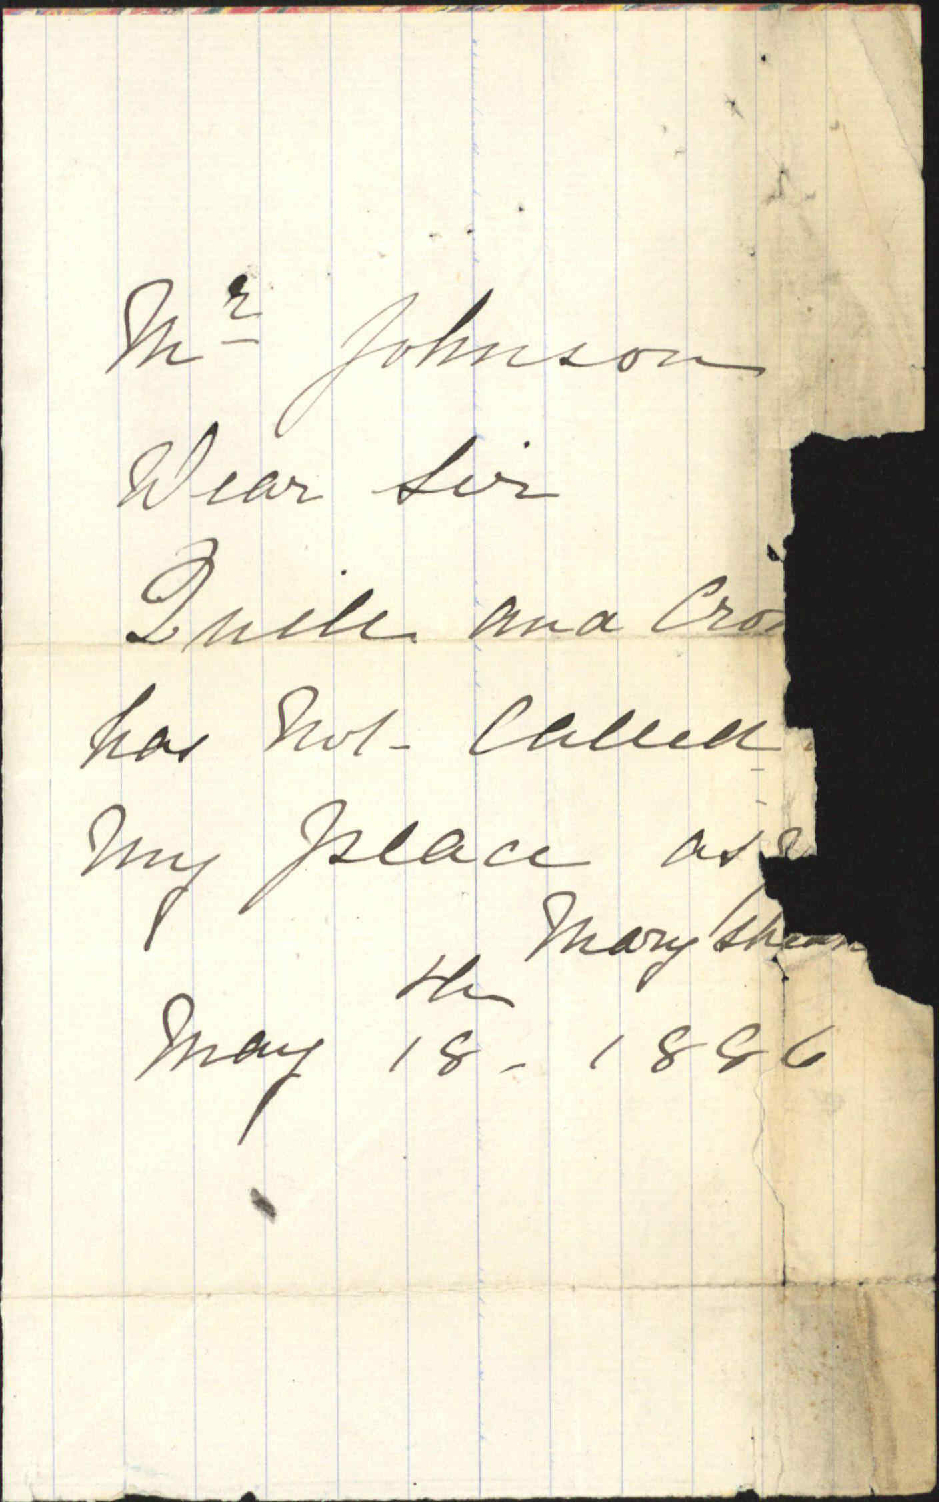 Mr Johnson
Dear Sir
Quill and
has not Called
My place as
Mary
May 18th - 1886